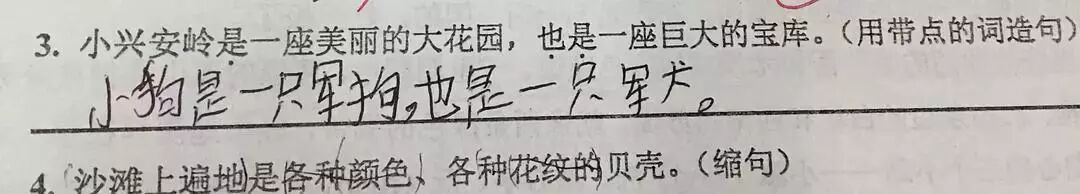 3. 小兴安岭是一座美丽的大花园，也是一座巨大的宝库。（用带点的词造句）
小狗是一只军狗，也是一只军犬。
4. 沙滩上遍地是各种颜色、各种花纹的贝壳。（缩句）